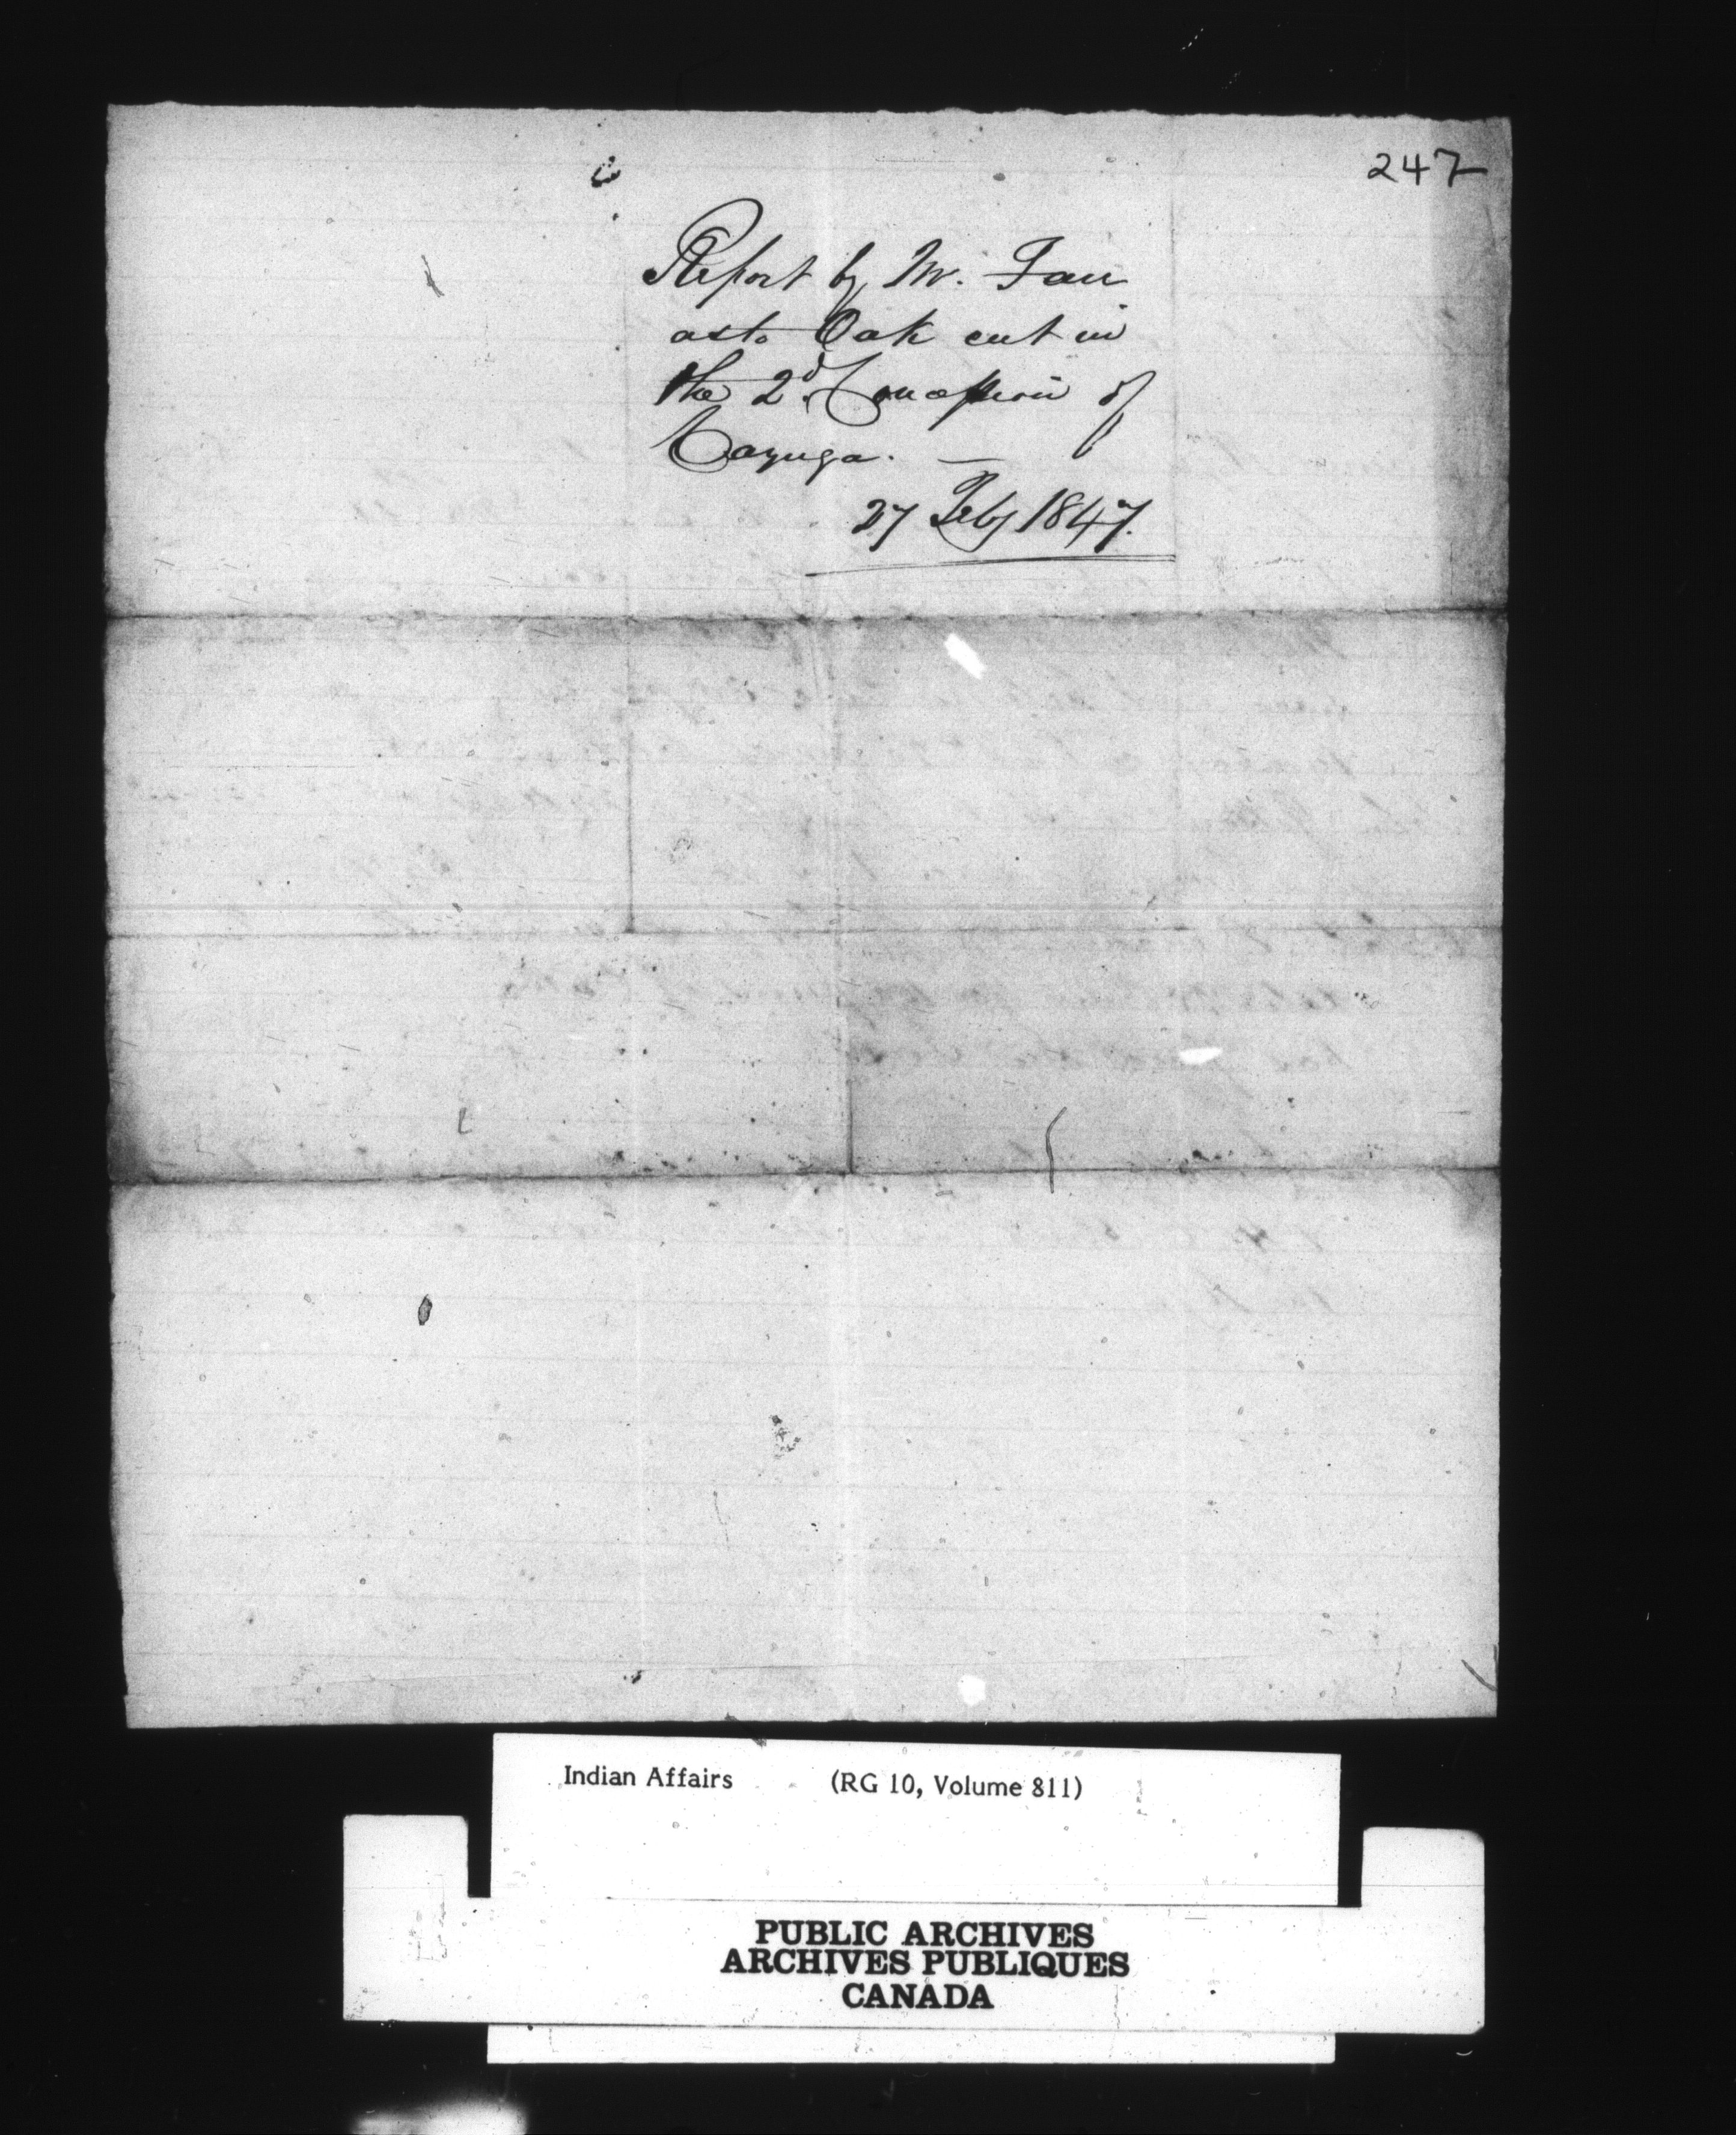 247
Report by Mr. Farr
as to Oak cut in
the 2d. Concession of
Cayuga. —
27 Feby 1847.
Indian Affairs (RG 10, Volume 811)
PUBLIC ARCHIVES
ARCHIVES PUBLIQUES
CANADA